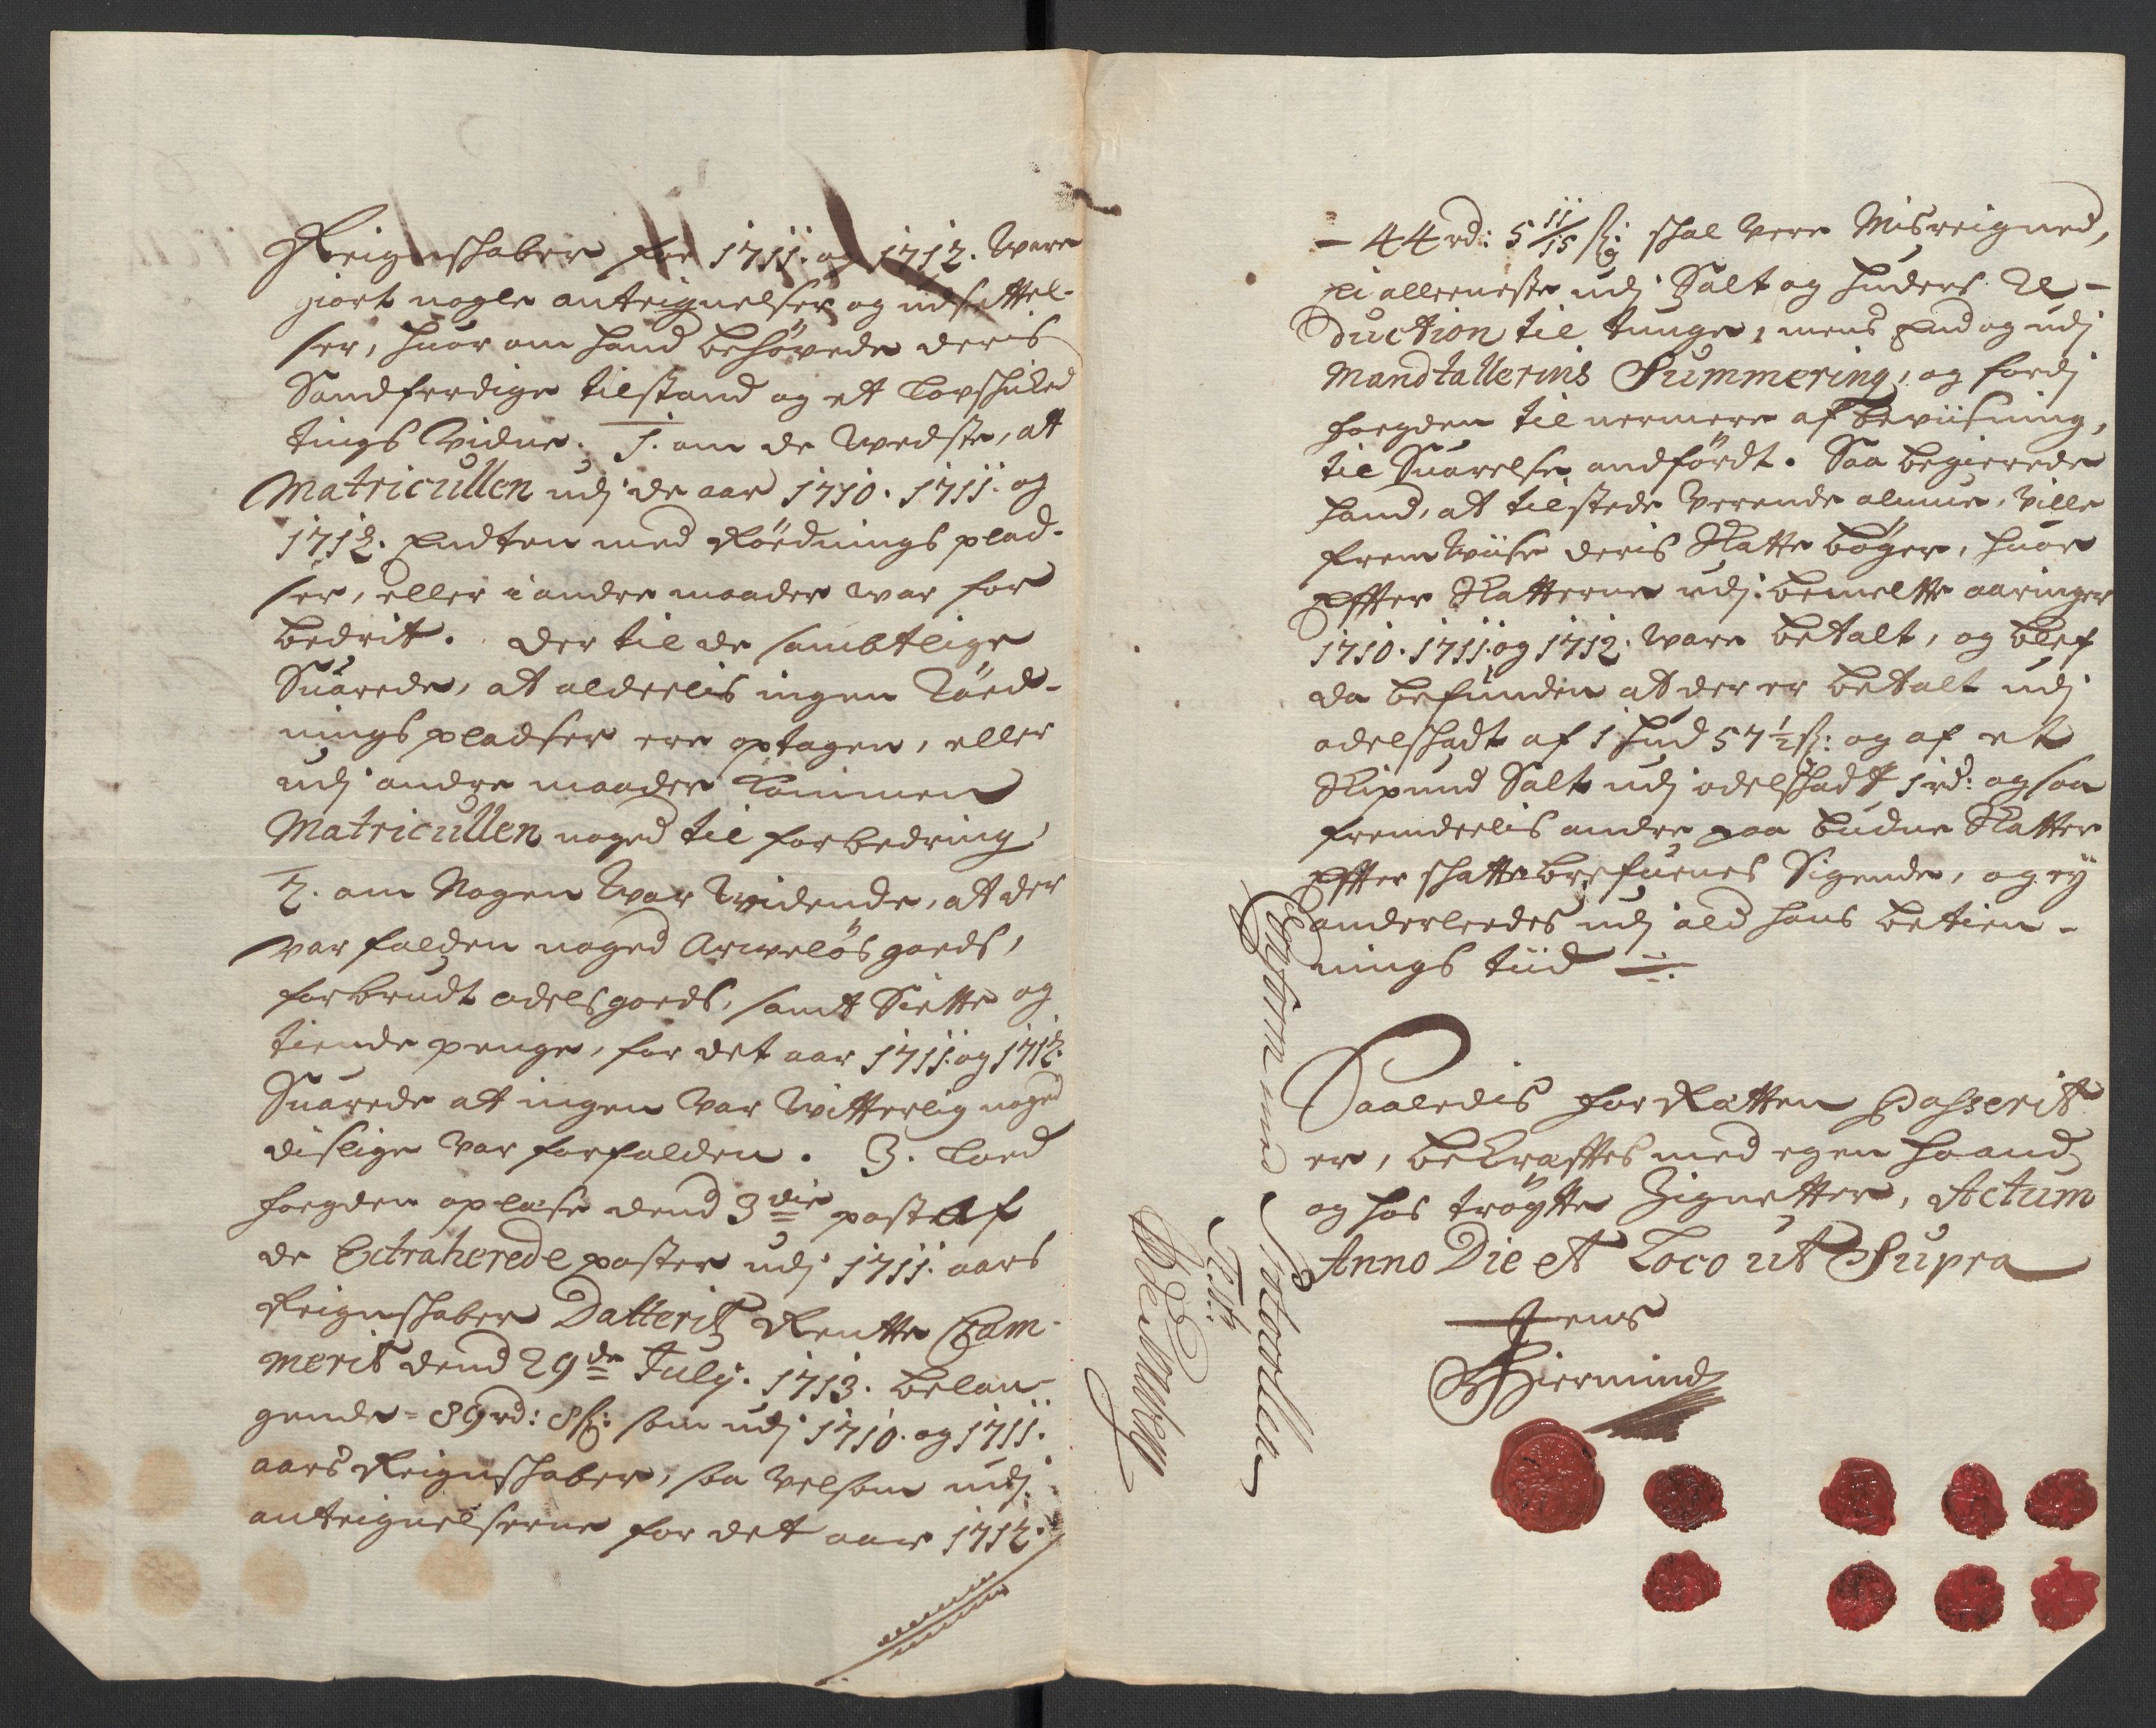 Reignschaber for 1711. og 1712. ware
giort nogle anteignelser og udsettel-
ser, huor om hand behöfvede deris
Sandferdige tilstand og et lovschiked
tings vidne. 1. om de vedste, at
Matricullen udj de aar 1710. 1711. og
1712. Endten med Röednings plad-
ser, eller i andre maader war for
bedrit. der til de sambtlige
Suarede, at alderlis ingen Röed-
nings pladser ere optagen, eller
udj andre maader kommen
Matricullen noged til forbedring
2. om Nogen war widende, at der
var falden noged Arweløs goeds,
forbrudt odelsgoeds, samt Siette og
tiende penge, for det aar 1711. og 1712.
Suarede at ingen var witterlig noged
dislige var forfalden. 3. Loed
fogden oplæse dend 3die post af
de Extraherede poster udj 1711. aars
Reignschaber Datterit Rentte Cam-
merit dend 29de July. 1713. belan-
gende 89 rd: 8 s: som udj 1710. og 1711.
aars Reignschaber, saa velsom udj
anteignelserne for det aar 1712.
- 44 rd: 5 11/15 s: schal vere Misreigned,
ei alleeneste udj Salt og huders Re-
duction til tunge, mens End og udj
Mandtallerins Summering, og fordj
fogden til nermere afbeviisning,
til Suarelse andfördt. Saa begierede
hand, at tilstede verende almue, ville
fremwiise deris Skatte bøger, huor
Effter Skatterne udj bemeltte aaringer
1710. 1711. og 1712. ware betalt, og blef
da befunden at der er betalt udj
odelschadt af 1 hud 57 1/2 s: og af et
Skipund Salt udj odelschadt 1 rd: og saa
fremdeelis andre paa budne Skatter
Effter schattebrefuenes Sigende, og ey
anderleedes udj ald hans betien-
nings tiid
Saaledis for Rætten Passerit
er, bekrafftes med egen haand
og hos tröгtte Zignetter, Actum
Anno Die et Loco ut Supra
Jens
Hiermind